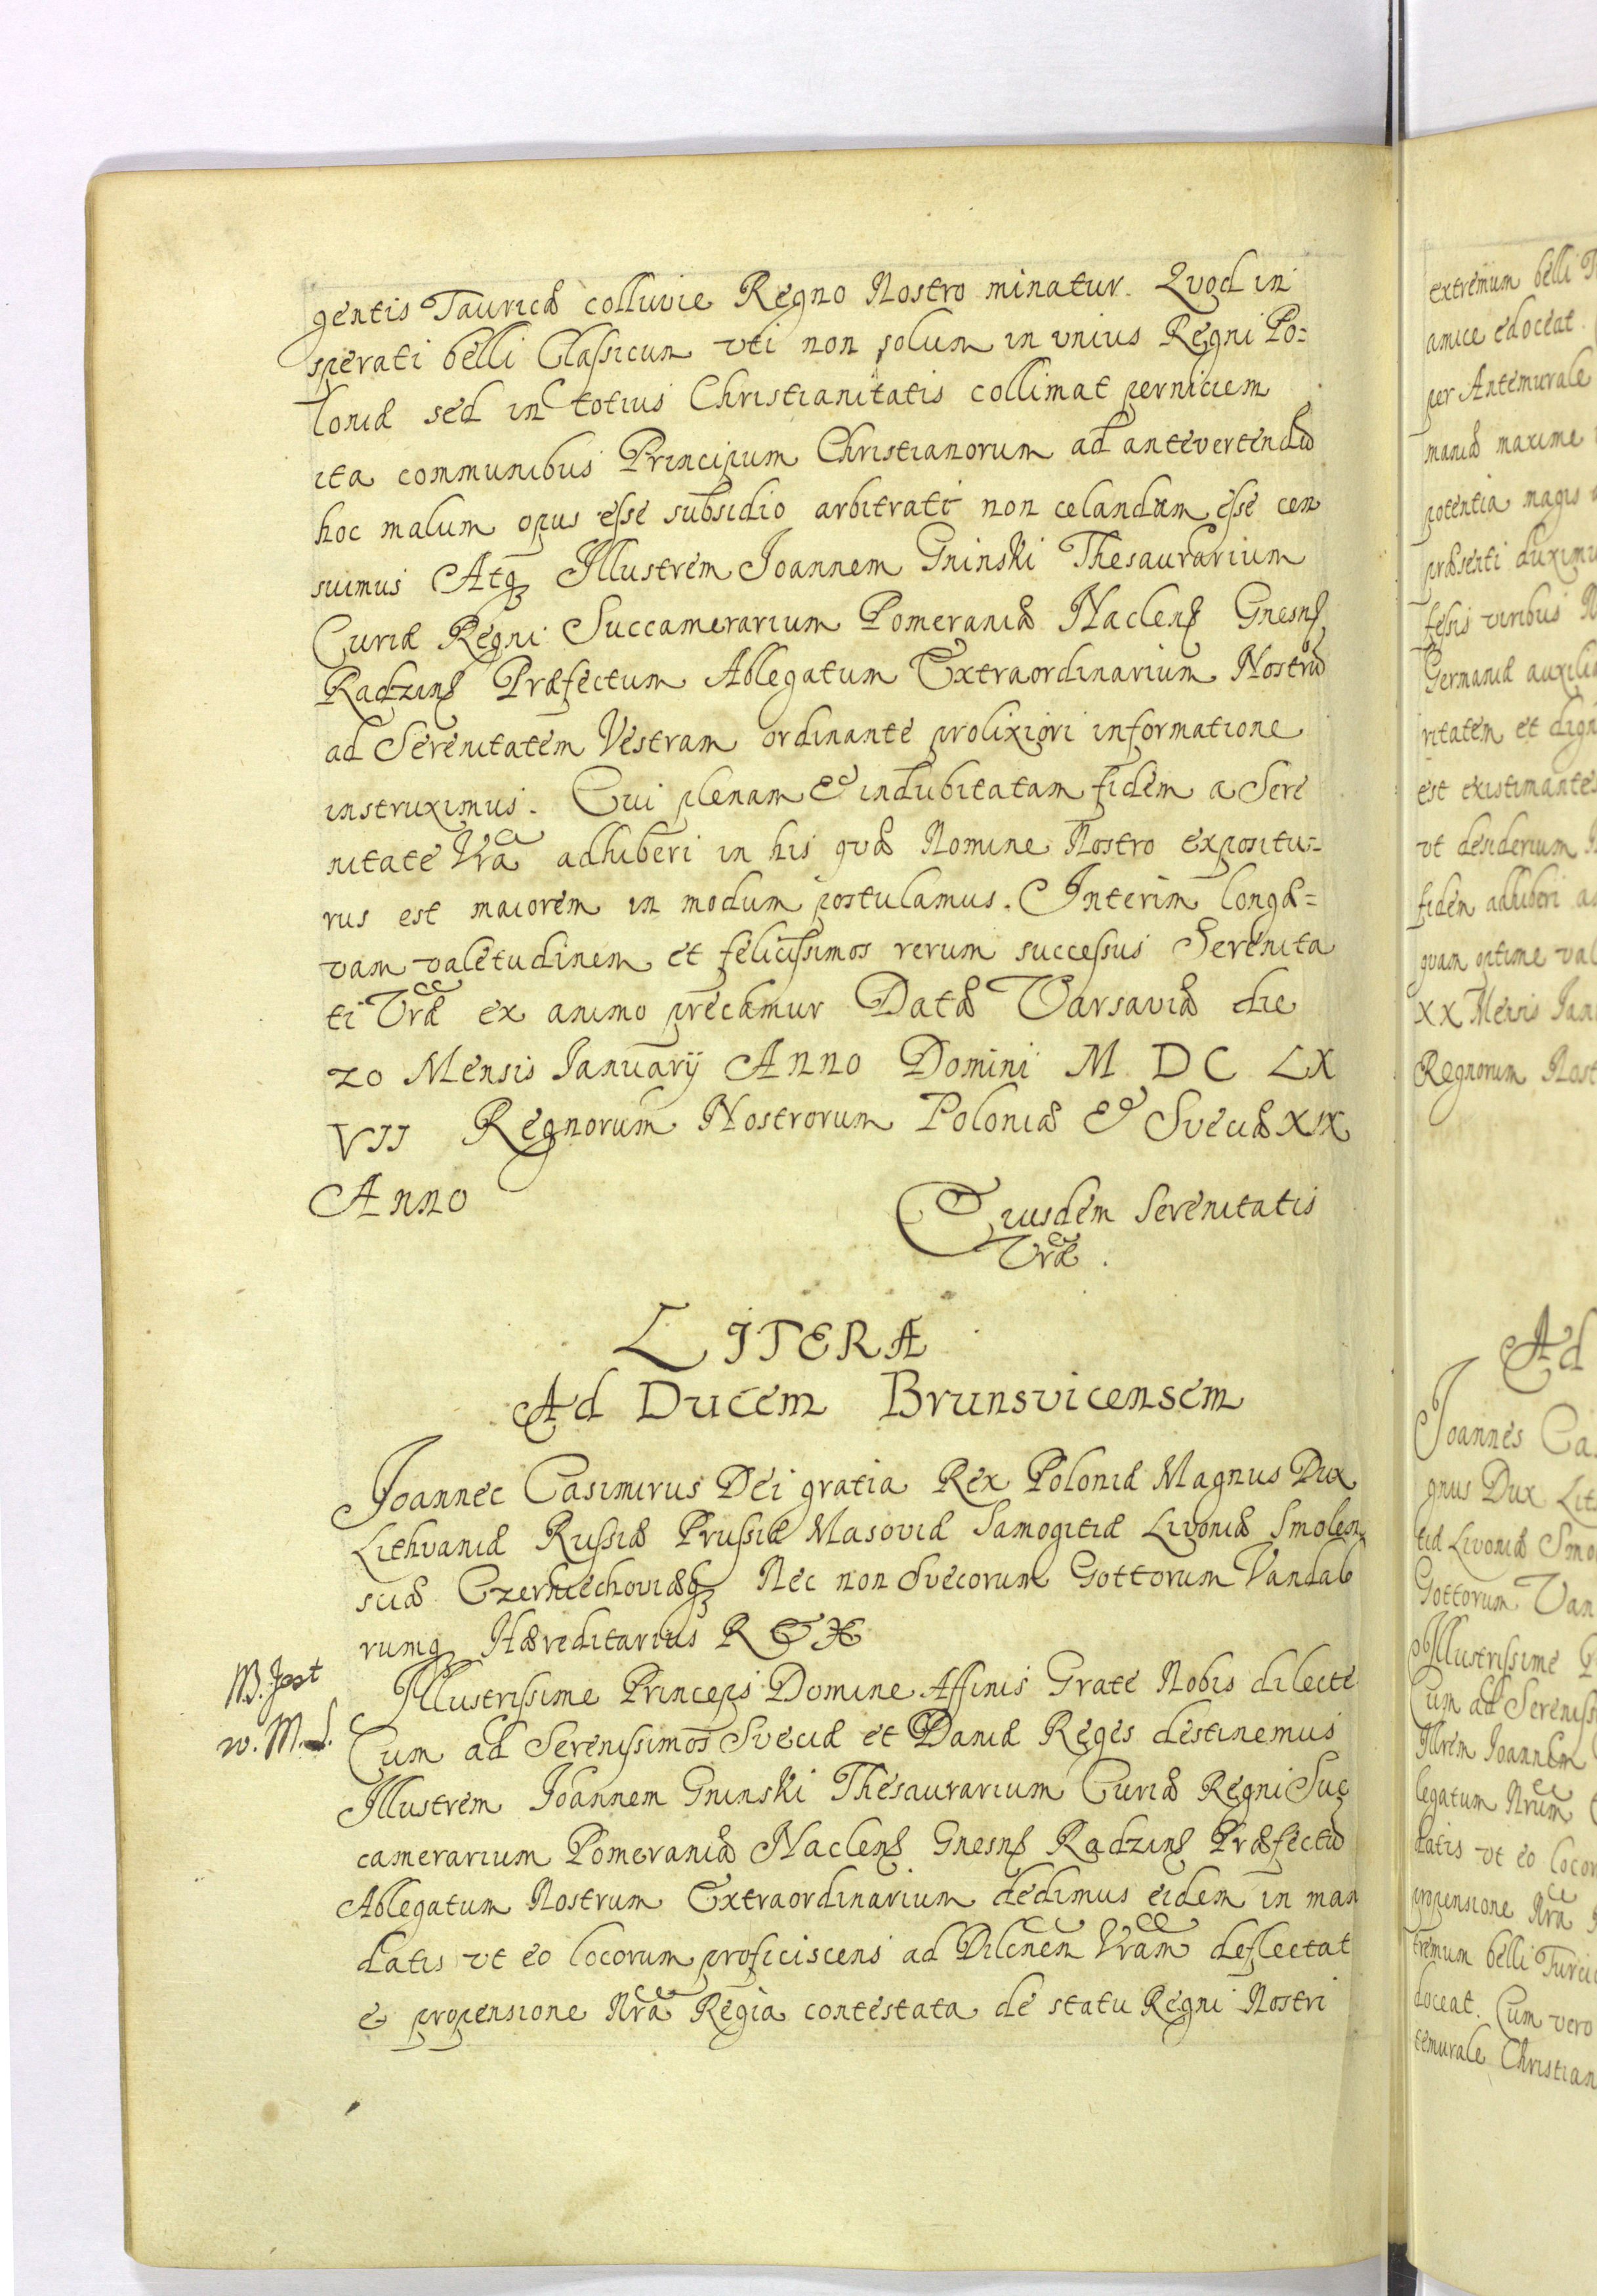 gentis Tauricæ colluvie Regno Nostro minatur. Quod in
sperati belli Classicum vti non solum in vnius Regni Po=
loniæ sed in totius Christianitatis collimat perniciem
ita communibus Principum Christianorum ad antevertendũ
hoc malum opus esse subsidio arbitrati non celandam esse cen
suimus Atqꝫ Illustrem Joannem Gninski Thesaurarium
Curiæ Regni Succamerarium Pomeraniæ Naclens Gnesns
Radzins Præfectum Ablegatum Extraordinarium Nostrũ
ad Serenitatem Vestram ordinante prolixiori informatione
instruximus. Cui plenam & indubitatam fidem a Sere
nitate Vra adhiberi in his quæ Nomine Nostro expositu=
rus est maiorem in modum postulamus. Interim longæ=
vam valetudinem et felicissimos rerum successus Serenita
ti Vræ ex animo precamur Datæ Varsaviæ die
20 Mensis Januarij Anno Domini M DC LX
VII Regnorum Nostrorum Poloniæ & Sveciæ XIX
Anno
Eiusdem Serenitatis
Vræ.
LITERÆ
Ad Ducem Brunsvicensem
Joannec Casimirus Dei gratia Rex Poloniæ Magnus Dux
Lithvaniæ Russiæ Prussiæ Masoviæ Samogitiæ Livoniæ Smolen
sciæ Czerniechoviæqꝫ Nec non Svecorum Gottorum Vandalo
rumqꝫ Hæreditarius REX
Illustrissime Princeps Domine Affinis Grate Nobis dilecte
NB. Jest
w. M. L.
Cum ad Serenissimos Sveciæ et Daniæ Reges destinemus
Illustrem Joannem Gninski Thesaurarium Curiæ Regni Suc
camerarium Pomeraniæ Naclens Gnesns Radzins Præfectũ
Ablegatum Nostrum Extraordinarium dedimus eidem in man
datis vt eo locorum proficiscens ad Dilcnen Vram deflectat
& propensione Nra Regia contestata de statu Regni Nostri
extremum belli T
amice edoceat.
per Antemurale
maniæ maxime
potentia magis
præsenti duximu
fessis viribus N
Germaniæ auxilia
ritatem et dign
est existimantes
vt desiderium
fidem adhiberi a
quam optime val
XX Mensis Jan
Regnorum Nost
Ad
Joannes Ca
gnus Dux Lit
tiæ Livoniæ Smo
Gottorum Van
Illustrissime P
Cum ad Sereniss
Illrem Joannem
legatum Nrum
datis vt eo locor
propensione Nra
tremum belli Turci
doceat. Cum vero
temurale Christian